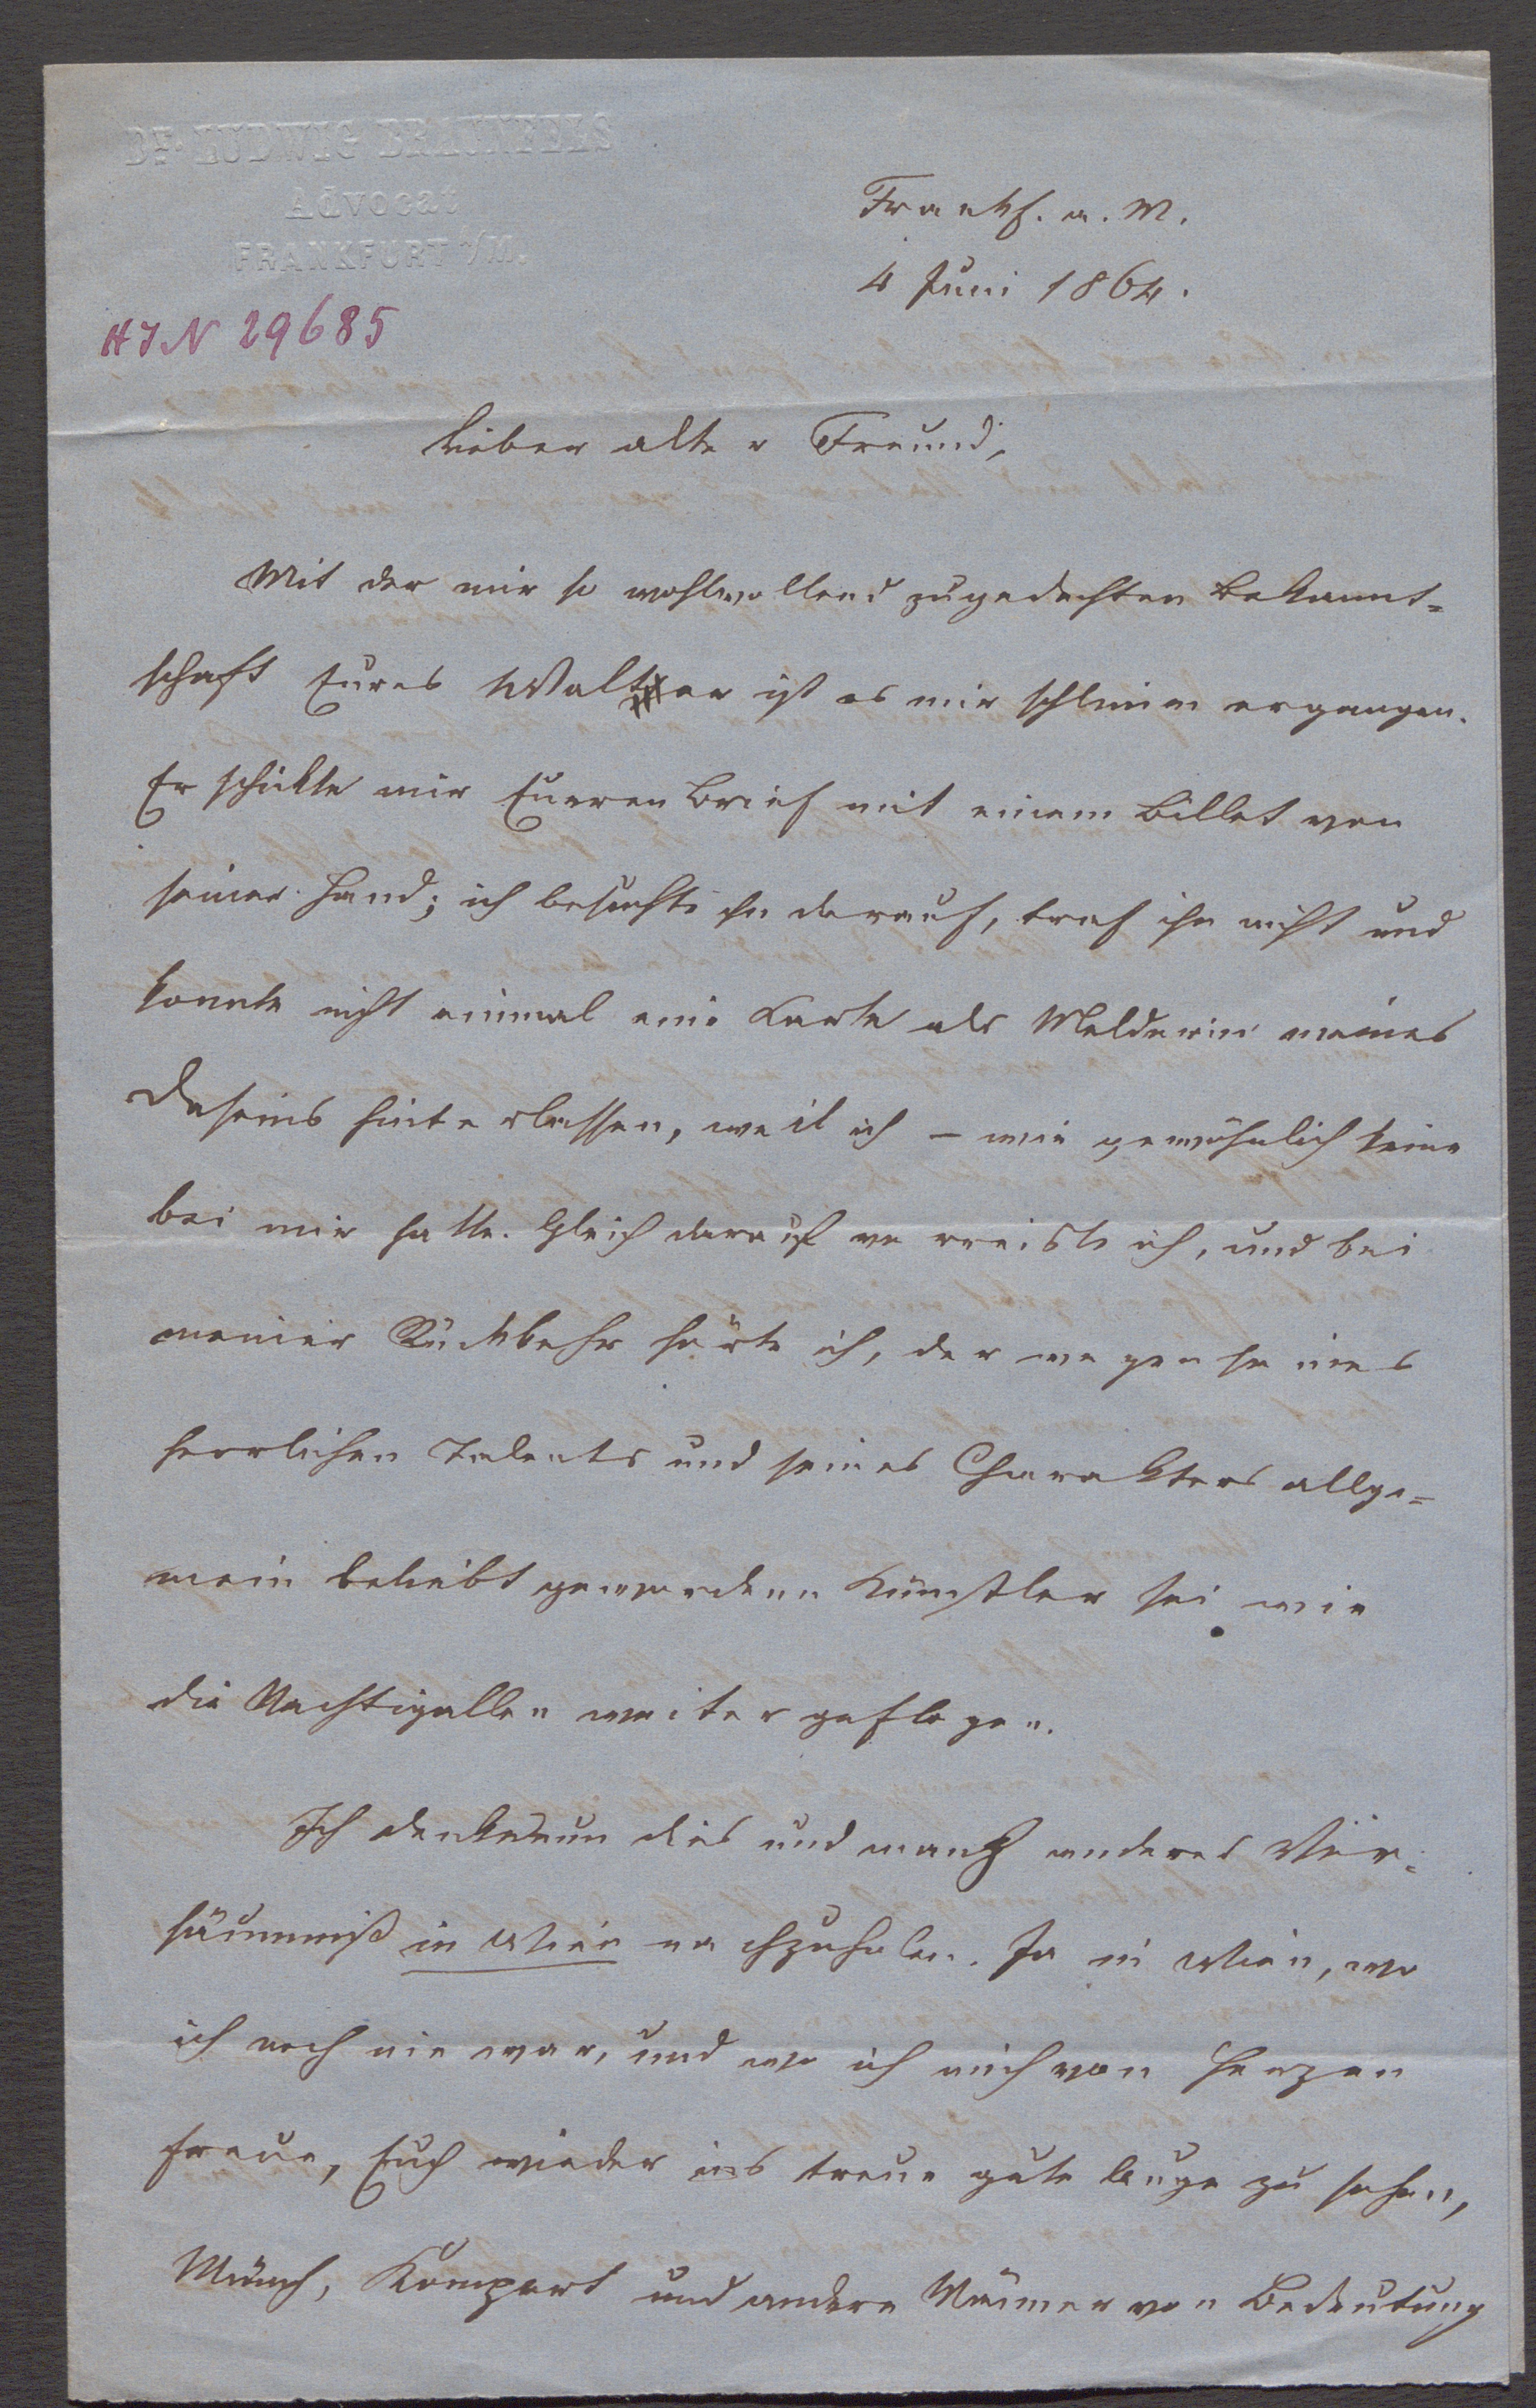 Dr. LUDWIG BRAUNFELS
Advocat
FRANKFURT a/M.
Frankf. a. M.
4 Juni 1864.
HIN 29685
Lieber alter Freund,
Mit der mir so wohlwollend zugedachten Bekannt-
schaft Eures Walter ist es mir schlimm ergangen.
Er schickte mir Eueren Brief mit einem Billet von
seiner Hand; ich besuchte ihn darauf, traf ihn nicht und
konnte nicht einmal eine Karte als Melderin meines
Daseins hinterlassen, weil ich – wie gewöhnlich keine
bei mir hatte. Gleich darauf verreiste ich, und bei
meiner Rückkehr hörte ich, der wegen seines
herrlichen Talents und seines Charakters allge-
mein beliebt gewordene Künstler sei wie
die Nachtigallen weiter geflogen.
Ich denke nun dies und manch anderes Ver-
säumniß in Wien nachzuholen. Ja in Wien, wo
ich noch nie war, und wo ich mich von Herzen
freue, Euch wieder ins treue gute Auge zu sehen,
Münch, Kompert und andere Männer von Bedeutung